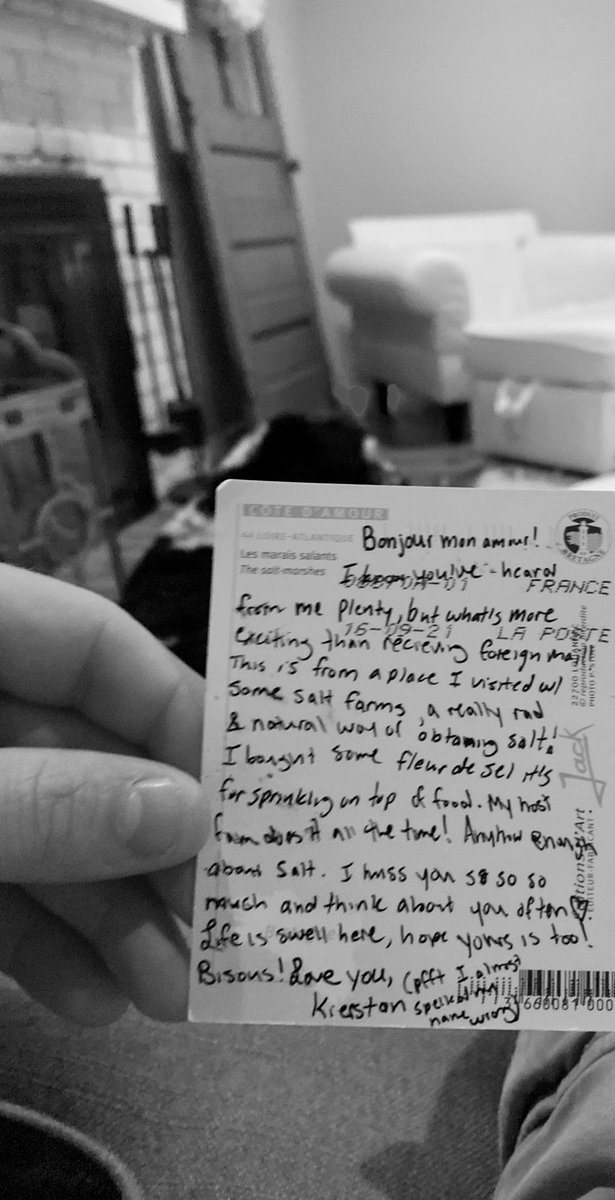 COTE D'AMOUR
PRODUIT
BRETAGNE
44 LOIRE-ATLANTIQUE
Bonjour mon amour!
Les marais salants
The salt-marshes
I you've heard
FRANCE
from me plenty, but what's more
16-09-21 LA POSTE
exciting than recieving foreign mail
This is from a place I visited w/
some salt farms, a really rad
& natural way of obtaining salt!
I bought some fleur de sel it's
for sprinkling on top of food. My host
fam does it all the time! Anyhow enough
about salt. I miss you so so so
much and think about you often!
Life is swell here, hope yours is too!
Bisous! Love you, (pfft I almost
Kierston spelled my
name wrong)
Jack
3 660081 000